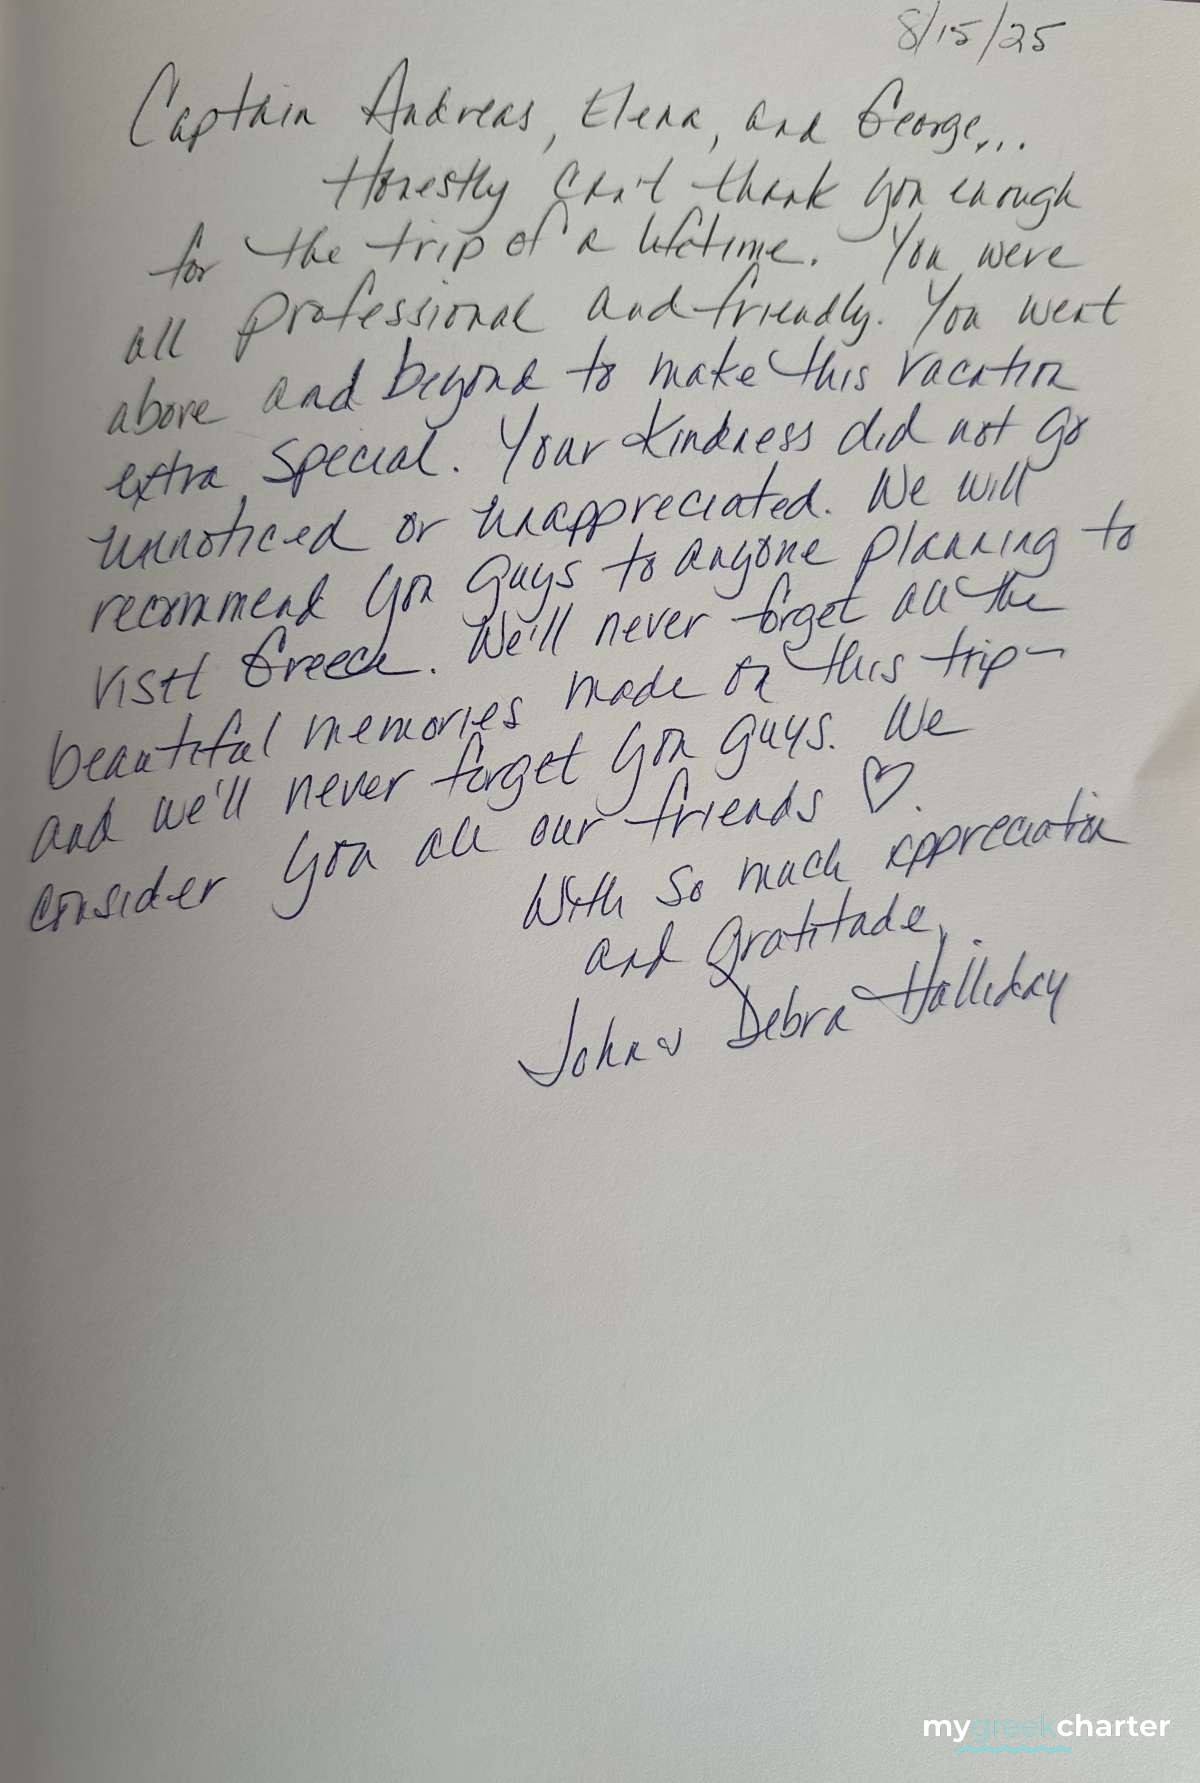 8/15/25
Captain Andreas, Elena, and George...
Honestly can't thank you enough
for the trip of a lifetime. You were
all professional and friendly. You went
above and beyond to make this vacation
extra special. Your kindness did not go
unnoticed or unappreciated. We will
recommend you guys to anyone planning to
visit Greece. We'll never forget all the
beautiful memories made on this trip-
and we'll never forget you guys. We
consider you all our friends ♡.
With so much appreciation
and gratitude,
John & Debra Halliday
mygreekcharter